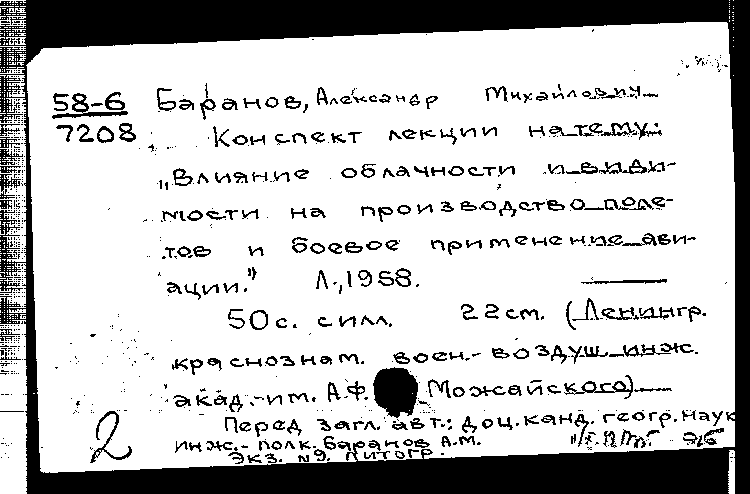 58-6 Баранов, Александр Михайлович
7208 Конспект лекции на тему:
„Влияние облачности и види-
мости на производство поле-
тов и боевое применение ави-
ации." Л., 1958.
50с. силл. 22см. (Ленингр.
краснознам. воен.-воздуш. инж.
акад. им. А.Ф. Можайского)
Перед загл. авт.: доц. канд. геогр. наук
2 инж.-полк. Баранов А.М.
Экз. №9. Литогр.